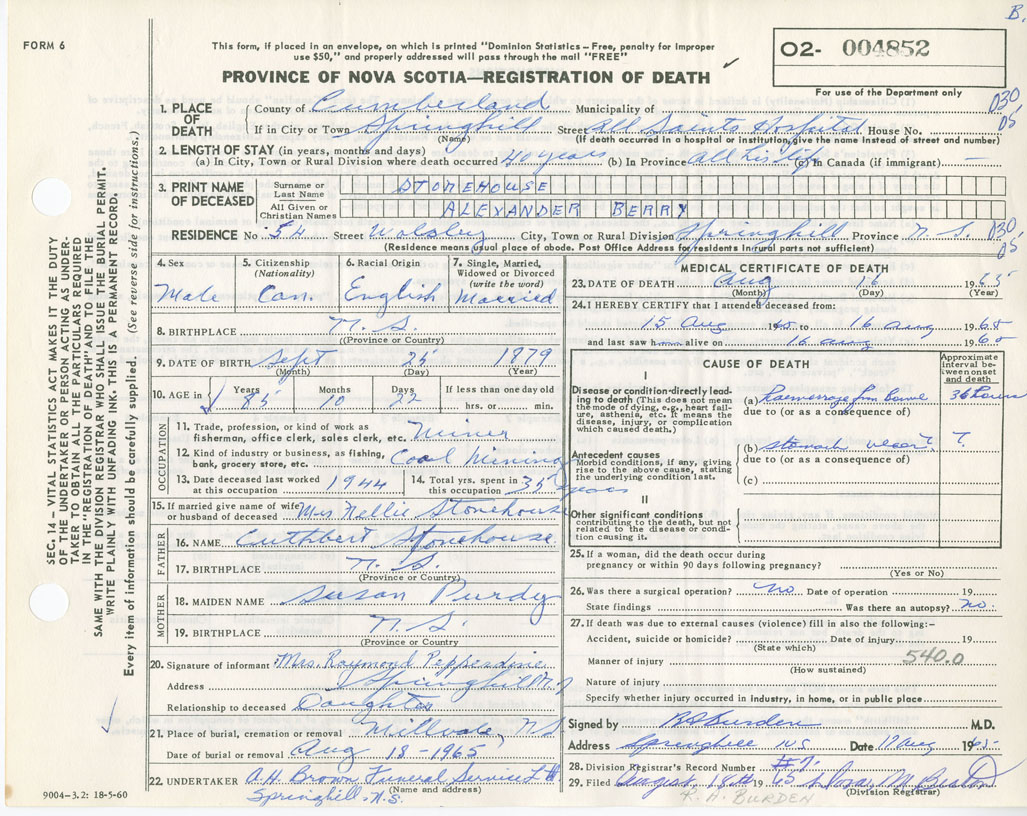 B.
FORM 6
This form, if placed in an envelope, on which is printed "Dominion Statistics—Free, penalty for improper
use $50," and properly addressed will pass through the mail "FREE"
PROVINCE OF NOVA SCOTIA—REGISTRATION OF DEATH
O2- 004852
For use of the Department only
030
05
1. PLACE OF DEATH
County of Cumberland Municipality of
If in City or Town Springhill Street All Saints Hospital House No.
(Name) (If death occurred in a hospital or institution, give the name instead of street and number)
2. LENGTH OF STAY (in years, months and days)
(a) In City, Town or Rural Division where death occurred 40 years (b) In Province all his life (c) In Canada (if immigrant) —
3. PRINT NAME OF DECEASED
Surname or Last Name STONEHOUSE
All Given or Christian Names ALEXANDER BERRY
RESIDENCE No 54 Street Wolsley City, Town or Rural Division Springhill Province N.S.
030
05
(Residence means usual place of abode. Post Office Address for residents in rural parts not sufficient)
4. Sex
Male
5. Citizenship (Nationality)
Can.
6. Racial Origin
English
7. Single, Married, Widowed or Divorced (write the word)
Married
8. BIRTHPLACE N.S.
(Province or Country)
9. DATE OF BIRTH Sept 25 1879
(Month) (Day) (Year)
10. AGE in Years 85 Months 10 Days 22 If less than one day old hrs. or min.
OCCUPATION
11. Trade, profession, or kind of work as
fisherman, office clerk, sales clerk, etc. Miner
12. Kind of industry or business, as fishing,
bank, grocery store, etc. Coal Mining
13. Date deceased last worked at this occupation 1944
14. Total yrs. spent in this occupation 35 years
15. If married give name of wife or husband of deceased Mrs Nellie Stonehouse
FATHER
16. NAME Cuthbert Stonehouse
17. BIRTHPLACE N.S.
(Province or Country)
MOTHER
18. MAIDEN NAME Susan Purdy
19. BIRTHPLACE N.S.
(Province or Country
20. Signature of informant Mrs. Raymond Pepperdine
Address Springhill N.S.
Relationship to deceased Daughter
21. Place of burial, cremation or removal Millvale, NS
Date of burial or removal Aug 18-1965
22. UNDERTAKER A.H. Brown Funeral Service Ltd
(Name and address)
Springhill N.S.
9004-3.2: 18-5-60
MEDICAL CERTIFICATE OF DEATH
23. DATE OF DEATH Aug 16 1965
(Month) (Day) (Year)
24. I HEREBY CERTIFY that I attended deceased from:
15 Aug 1965 to 16 Aug 1965
and last saw h alive on 16 Aug 1965
CAUSE OF DEATH
Approximate interval between onset and death
I
Disease or condition directly leading to death (This does not mean the mode of dying, e.g., heart failure, asthenia, etc. It means the disease, injury, or complication which caused death.)
(a) Haemorrage from bowel 36 hours
due to (or as a consequence of)
Antecedent causes
Morbid conditions, if any, giving rise to the above cause, stating the underlying condition last.
(b) stomach ulcer? ?
due to (or as a consequence of)
(c)
II
Other significant conditions
contributing to the death, but not related to the disease or condition causing it.
25. If a woman, did the death occur during
pregnancy or within 90 days following pregnancy?
(Yes or No)
26. Was there a surgical operation? no. Date of operation 19
State findings Was there an autopsy? no.
27. If death was due to external causes (violence) fill in also the following:—
Accident, suicide or homicide? Date of injury 19
(State which)
Manner of injury 540.0
(How sustained)
Nature of injury
Specify whether injury occurred in industry, in home, or in public place
Signed by R H Burden M.D.
Address Springhill NS Date 17 Aug 1965
28. Division Registrar's Record Number #71
29. Filed August 18th 1965
(Division Registrar)
R. H. BURDEN
SEC. 14—VITAL STATISTICS ACT MAKES IT THE DUTY
OF THE UNDERTAKER OR PERSON ACTING AS UNDER-
TAKER TO OBTAIN ALL THE PARTICULARS REQUIRED
IN THE "REGISTRATION OF DEATH" AND TO FILE THE
SAME WITH THE DIVISION REGISTRAR WHO SHALL ISSUE THE BURIAL PERMIT.
WRITE PLAINLY WITH UNFADING INK. THIS IS A PERMANENT RECORD.
Every item of information should be carefully supplied. (See reverse side for instructions.)